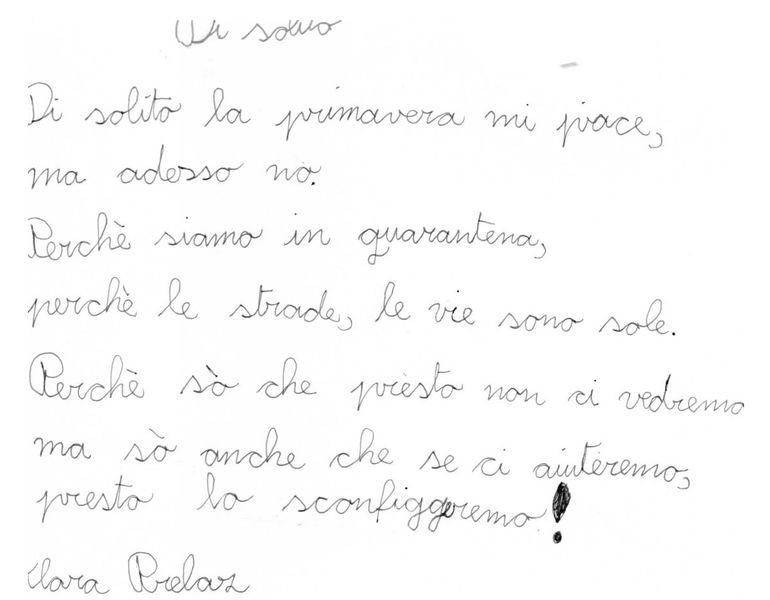 Di solito la primavera mi piace,
ma adesso no.
Perchè siamo in quarantena,
perchè le strade, le vie sono sole.
Perchè sò che presto non ci vedremo
ma sò anche che se ci aiuteremo,
presto lo sconfiggeremo!
Clara Prelaz